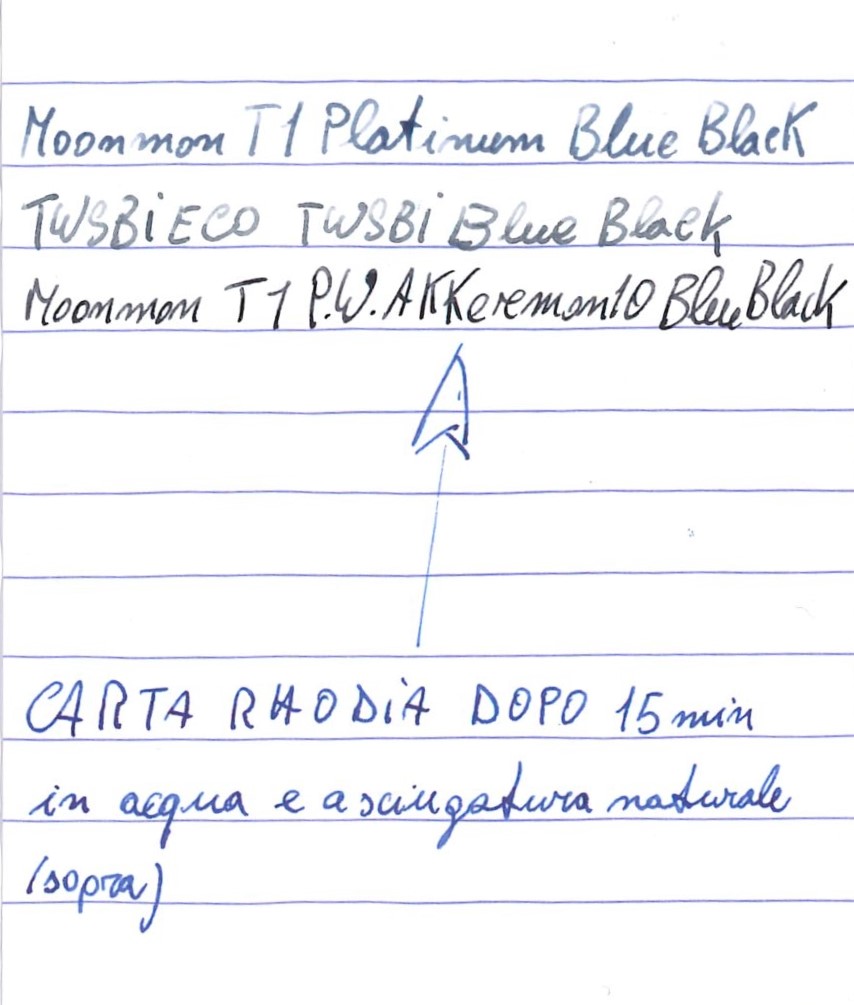 Moonmon T1 Platinum Blue Black
TWSBi ECO TWSBi Blue Black
Moonmon T1 P.W. AKKereman 10 Blue Black
CARTA RHODiA DOPO 15 min
in acqua e asciugatura naturale
(sopra)